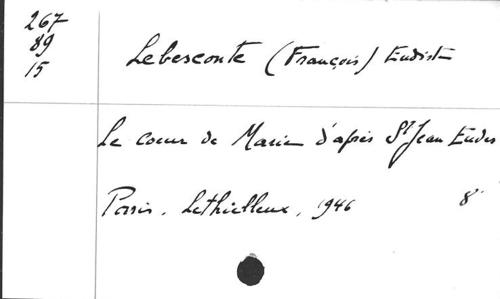 267
89
15
Lebesconte (François) Eudiste
Le coeur de Marie d'après St Jean Eudes
Paris, Lethielleux, 1946 8°